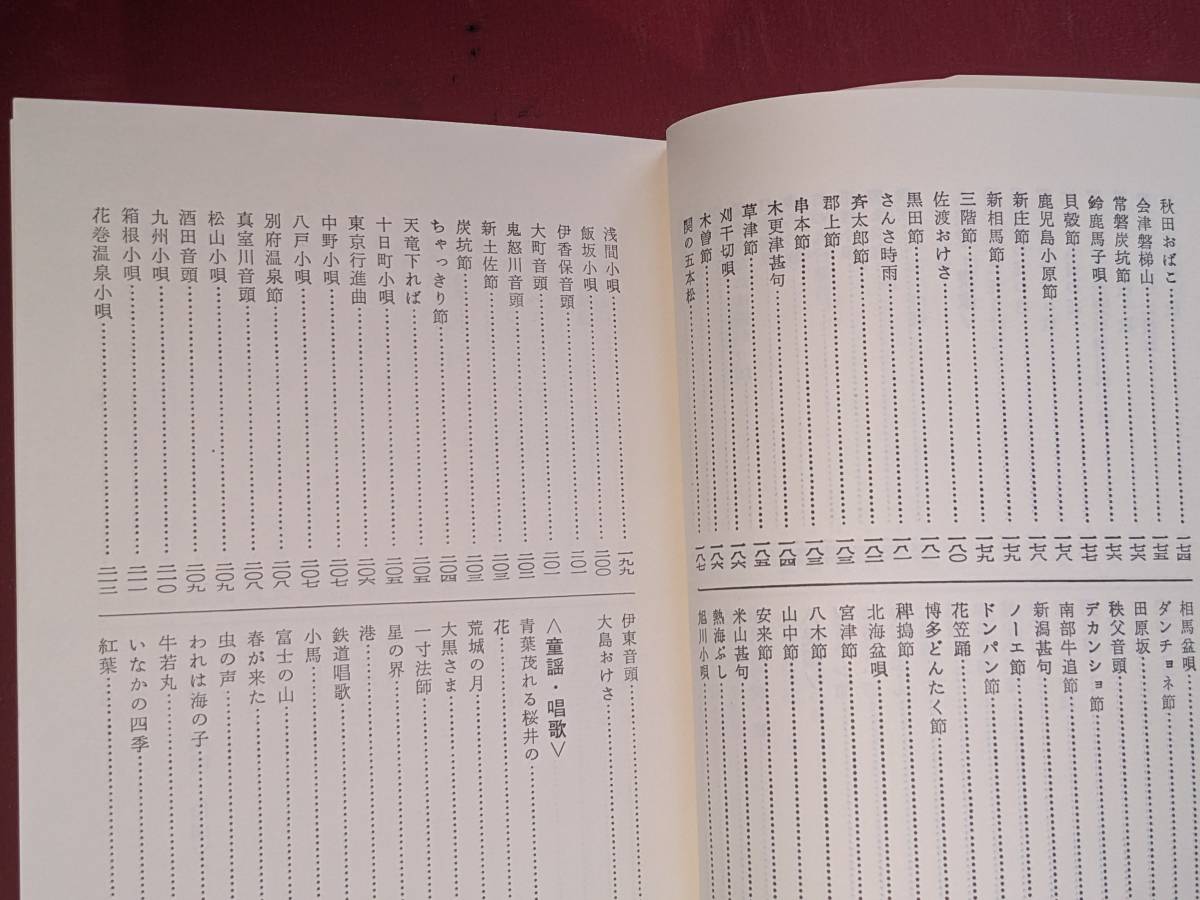 秋田おばこ……一七四
会津磐梯山……一七五
常磐炭坑節……一七六
鈴鹿馬子唄……一七六
貝殻節……一七七
鹿児島小原節……一七八
新庄節……一七八
新相馬節……一七九
三階節……一七九
佐渡おけさ……一八〇
黒田節……一八一
さんさ時雨……一八一
斉太郎節……一八二
郡上節……一八三
串本節……一八三
木更津甚句……一八四
草津節……一八五
刈干切唄……一八六
木曽節……一八六
関の五本松……一八七
相馬盆唄……
ダンチョネ節……
田原坂……
秩父音頭……
デカンショ節……
南部牛追節……
新潟甚句……
ノーエ節……
ドンパン節……
花笠踊……
博多どんたく節……
稗搗節……
北海盆唄……
宮津節……
八木節……
山中節……
安来節……
米山甚句……
熱海ぶし……
旭川小唄……
浅間小唄……一九九
飯坂小唄……二〇〇
伊香保音頭……二〇一
大町音頭……二〇一
鬼怒川音頭……二〇二
新土佐節……二〇三
炭坑節……二〇三
ちゃっきり節……二〇四
天竜下れば……二〇五
十日町小唄……二〇五
東京行進曲……二〇六
中野小唄……二〇七
八戸小唄……二〇七
別府温泉節……二〇八
真室川音頭……二〇八
松山小唄……二〇九
酒田音頭……二〇九
九州小唄……二一〇
箱根小唄……二一一
花巻温泉小唄……二一二
伊東音頭……
大島おけさ……
＜童謡・唱歌＞
青葉茂れる桜井の……
花……
荒城の月……
大黒さま……
一寸法師……
星の界……
港……
鉄道唱歌……
小馬……
富士の山……
春が来た……
虫の声……
われは海の子……
牛若丸……
いなかの四季……
紅葉……